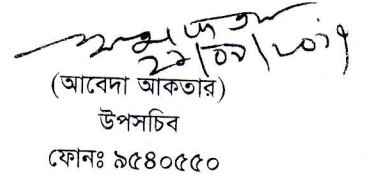 ২১/০৯/২০১৭
(আবেদা আকতার)
উপসচিব
ফোনঃ ৯৫৪০৫৫০